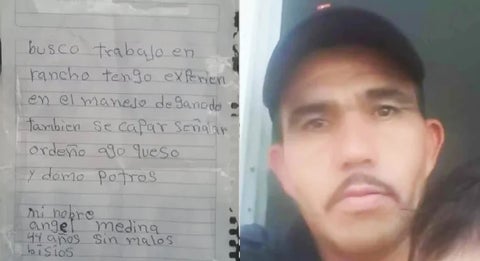 busco trabajo en
rancho tengo experien
en el manejo de ganado
tambien se capar señalar
ordeño ago queso
y domo potros
mi nobre
angel medina
44 años sin malos
bisios